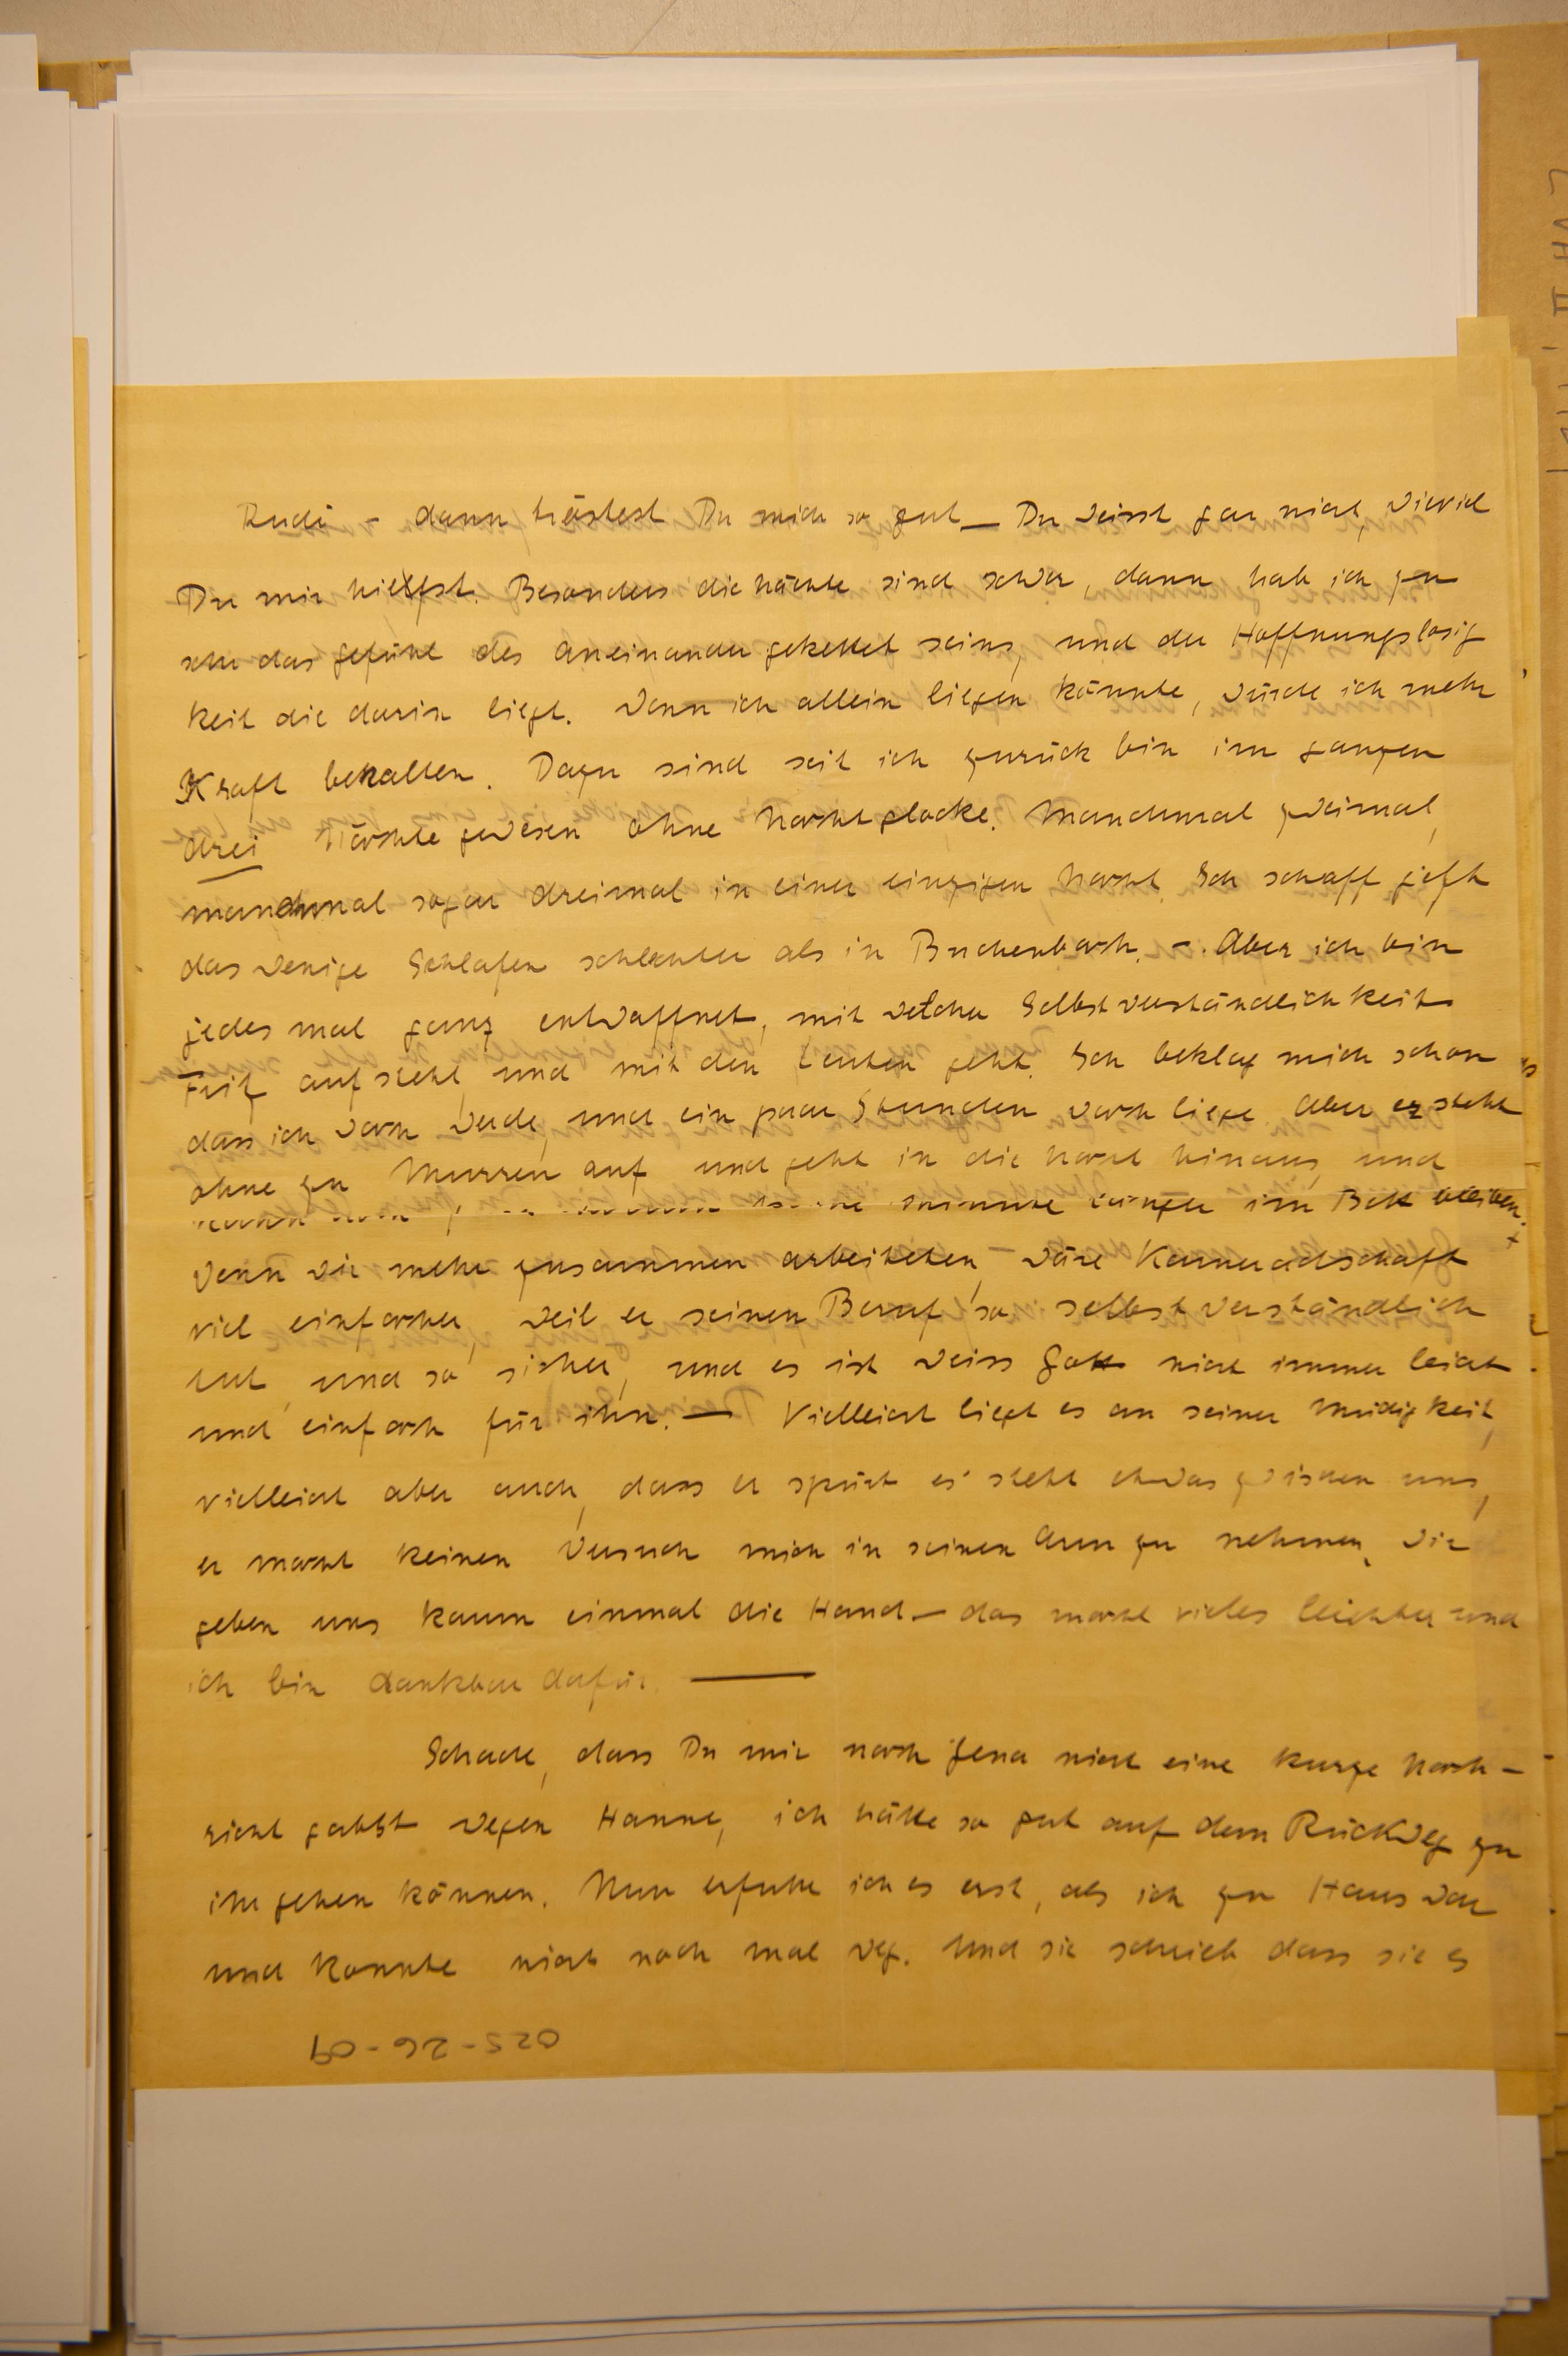 Rudi – dann tröstest Du mich so gut — Du weisst gar nicht, wieviel
Du mir hielfst. Besonders die Nächte sind schwer, dann hab ich zu
sehr das Gefühl des Aneinander gekettet seins, und der Hoffnungslosig
keit die darin liegt. Wenn ich allein liegen könnte, würde ich mehr
Kraft behalten. Dazu sind seit ich zurück bin im ganzen
drei Nächte gewesen ohne Nachtglocke. Manchmal zweimal,
manchmal sogar dreimal in einer einzigen Nacht. Ich schaff jetzt
das wenige Schlafen schlechter als in Buchenbach. –. Aber ich bin
jedes mal ganz entwaffnet, mit welcher Selbstverständlichkeit
Fritz aufsteht, und mit den Leuten geht. Ich beklag mich schon
dass ich wach werde, und ein paar Stunden wach liege. Aber er steht
ohne zu Murren auf und geht in die Nacht hinaus, und
Minute länger im Bett bleiben.
Wenn wir mehr zusammen arbeiteten, wäre Kameradschaft
viel einfacher, weil er seinen Beruf so selbstverständlich
tut, und so sicher, und es ist weiss Gott nicht immer leicht
und einfach für ihn. — Vielleicht liegt es an seiner Müdigkeit,
vielleicht aber auch, dass er spürt es steht etwas zwischen uns,
er macht keinen Versuch mich in seinen Arm zu nehmen, wir
geben uns kaum einmal die Hand — das macht vieles leichter und
ich bin dankbar dafür. ——
Schade, dass Du mir nach Jena nicht eine kurze Nach-
richt gabst wegen Hanne, ich hätte so gut auf dem Rückweg zu
ihr gehen können. Nun erfuhr ich es erst, als ich zu Haus war
und konnte nicht noch mal weg. Und sie schrieb dass sie es
025-26-09